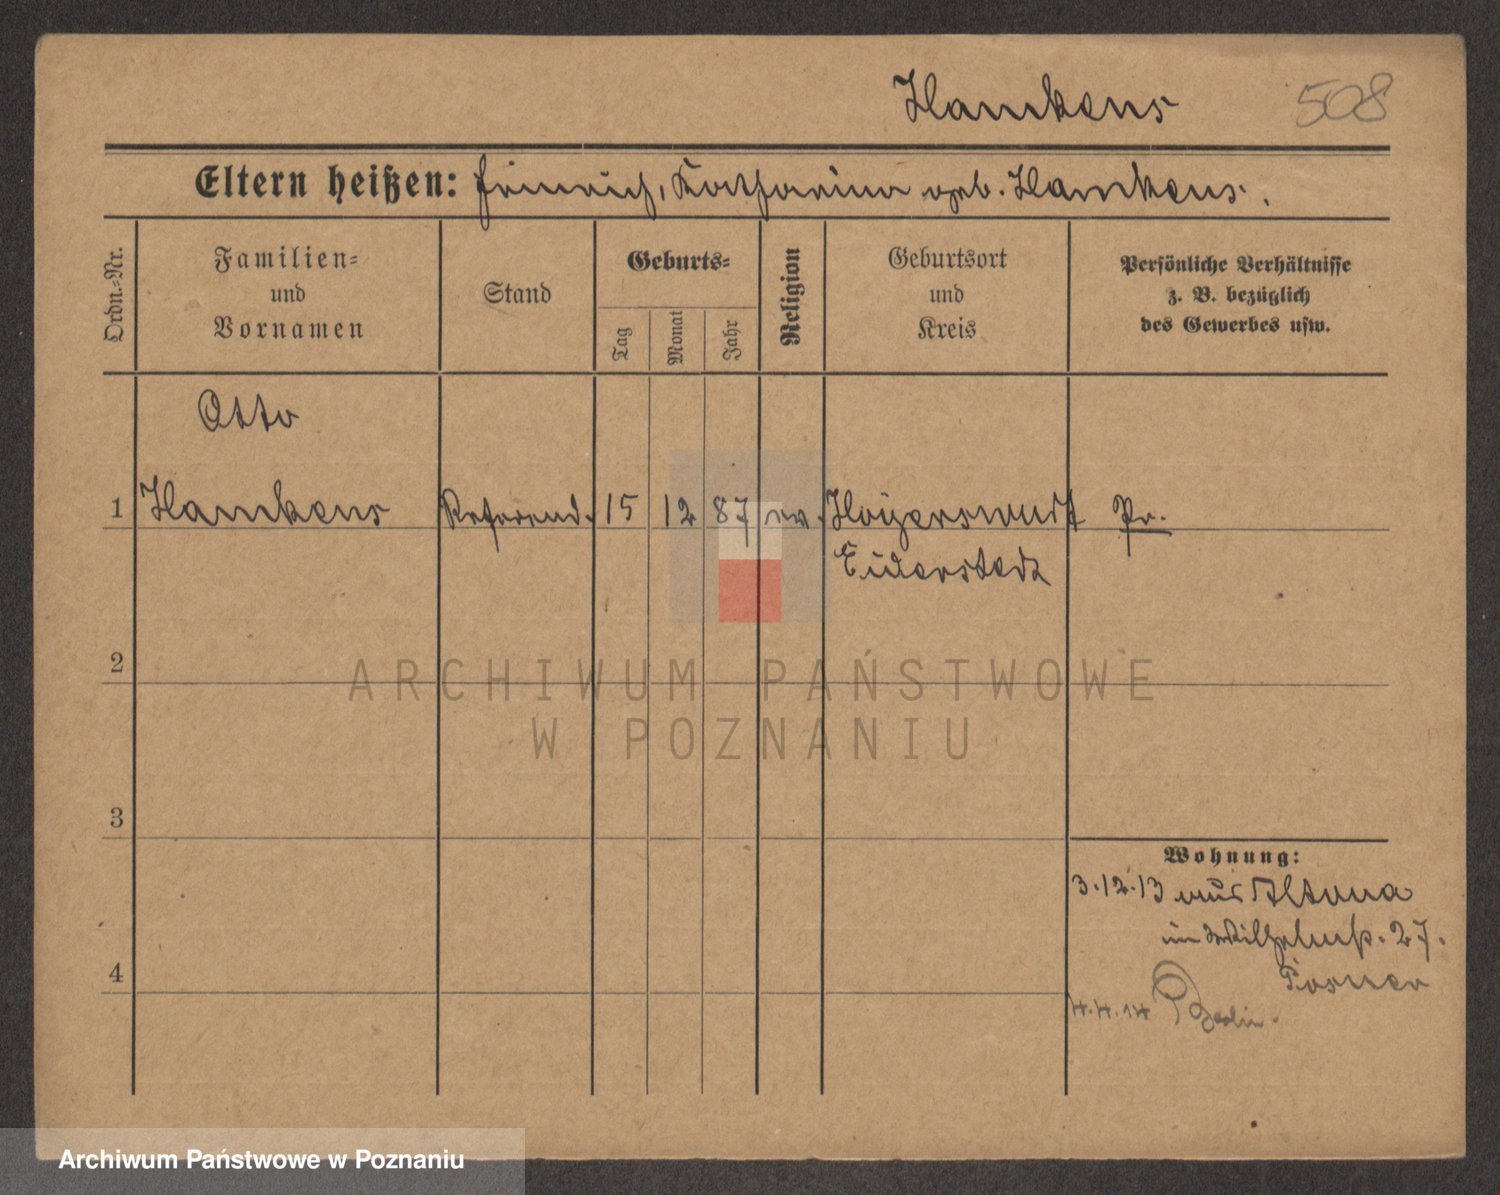 Hamkens 508
Eltern heißen: Hinrich, Katharina geb. Hamkens.
Ordn.-Nr.
Familien-
und
Vornamen
Stand
Geburts-
Tag
Monat
Jahr
Religion
Geburtsort
und
Kreis
Persönliche Verhältnisse
z. B. bezüglich
des Gewerbes usw.
Otto
1 Hamkens Referend. 15 12 87 ev. Hoyerswort Pr.
Eiderstedt
2
3
4
Wohnung:
3.12.13 aus Altona
in Wilhelmstr. 27.
4.4.14 Berlin.
ARCHIWUM PAŃSTWOWE
W POZNANIU
Archiwum Państwowe w Poznaniu